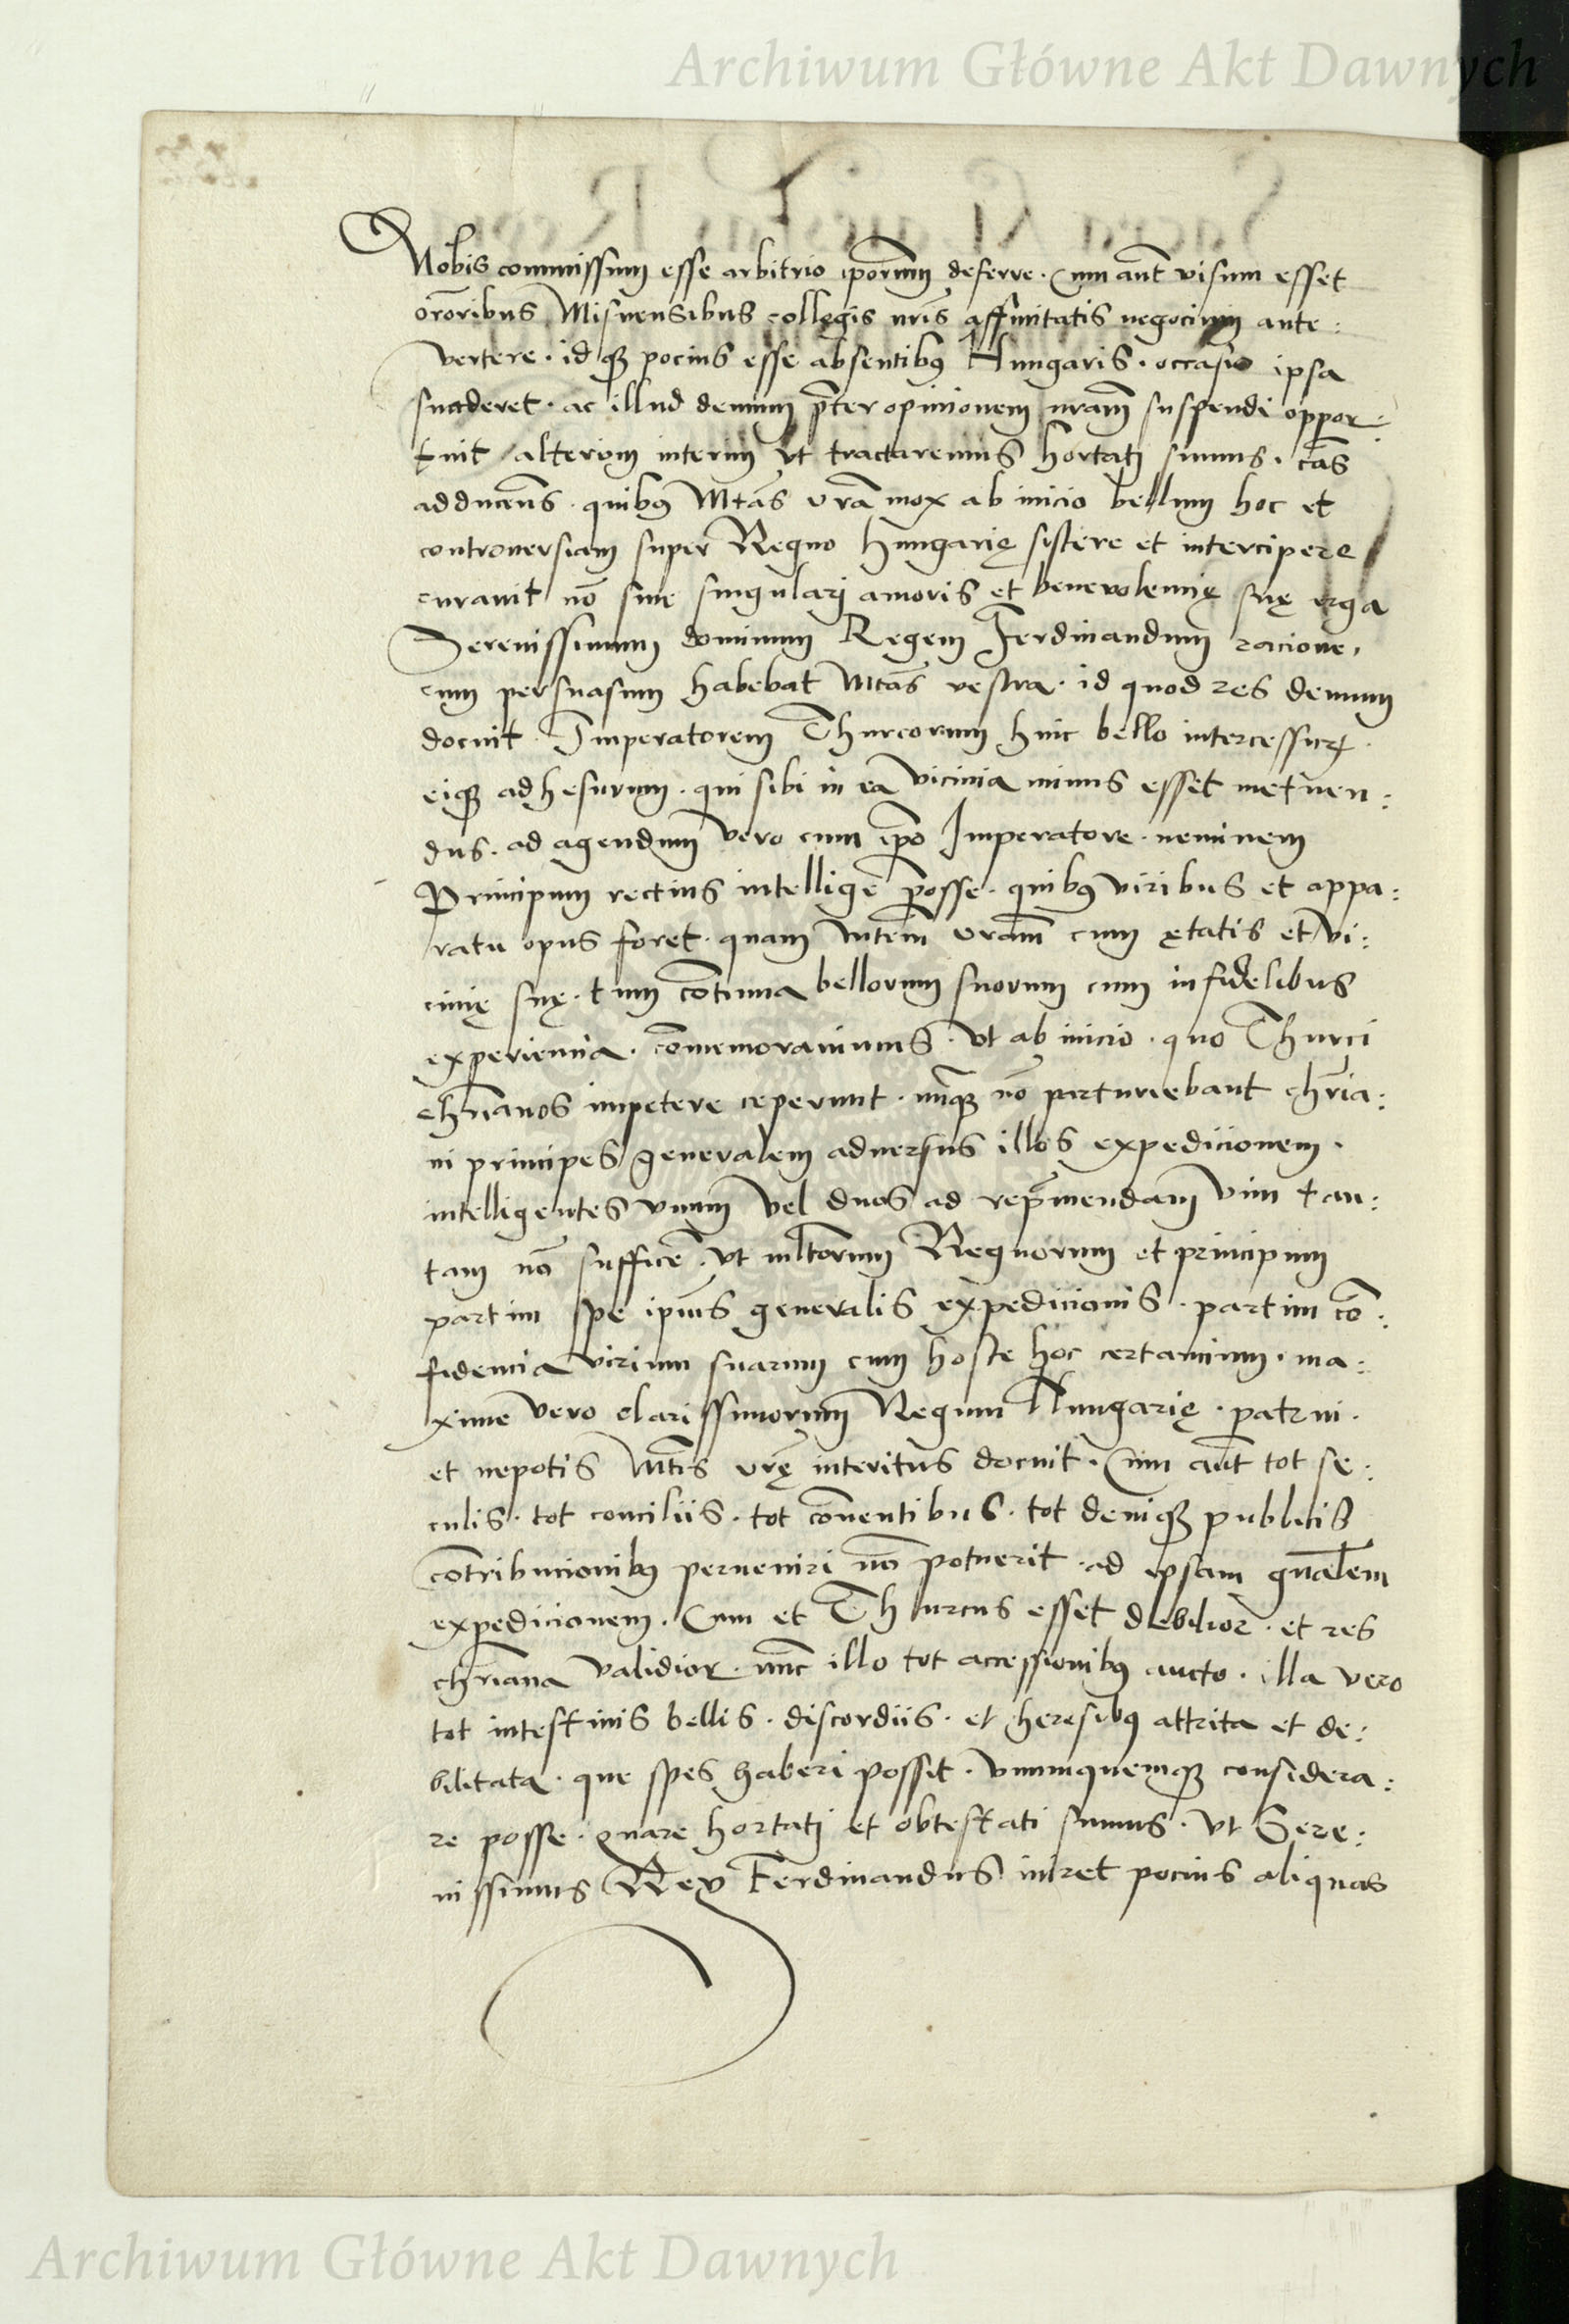 Archiwum Główne Akt Dawnych
Nobis commissum esse arbitrio ip̄orum deferre. Cum aūt visum esset
orōribus Misnensibus collegis nr̄is affinitatis negocium ante:
vertere. id q₃ pocius esse absentibꝰ Hungaris. occasio ipsa
suaderet. ac illud demum p̄ter opinionem nr̄am suspendi oppor:
tuit alterum interim vt tractaremus hortatj sumus. cās
adducens. quibꝰ Mtās vrā mox ab inicio bellum hoc et
controuersiam super Regno hungarię sistere et intercipere
curauit nō sine singularj amoris et beneuolencię suę erga
Serenissimum dominum Regem Ferdinandum racione,
cum persuasum habebat Mtās vestra. id quod res demum
docuit. Imperatorem Thurcorum huic bello intercessurꝝ.
eiq₃ adhesurum. qui sibi in ea vicinia minus esset metuen:
dus. ad agendum vero cum ip̄o Imperatore. neminem
Principum rectius intelligē posse. quibꝰ viribus et appa:
ratu opus foret. quam Mtem̄ vrām cum ętatis et vi:
cinię suę. tum cōtinua bellorum suorum cum infidelibus
experiencia. cōmemorauimus. vt ab inicio. quo Thurci
chr̄ianos impetere ceperunt. nunq₃ nō parturiebant chr̄ia:
ni principes generalem aduersus illos expedicionem.
intelligentes vnum vel duos ad reprīmendam vim tan:
tam nō sufficē. vt multorum Regnorum et principum
partim spe ipius̄ generalis expedicionis. partim cō:
fidencia virium suarum cum hoste hoc certancium. ma:
xime vero clarissimorum Regum Hungarię. patrui.
et nepotis Mtis̄ vrę̄ interitus docuit. Cum aūt tot se:
culis. tot conciliis. tot cōuentibus. tot deniq₃ publicis
cōtribucionibꝰ perueniri nō potuerit. ad ipsam gn̄alem
expedicionem. Cum et Thurcus esset debilior. et res
chr̄iana validior. nūc illo tot accessionibꝰ aucto. illa vero
tot intestinis bellis. discordiis. et heresibꝰ attrita et de:
bilitata. que spes haberi possit. vnumquemq₃ considera:
re posse. quare hortatj et obtestati sumus. vt Sere:
nissimus Rex Ferdinandus iniret pocius aliquas
Archiwum Główne Akt Dawnych